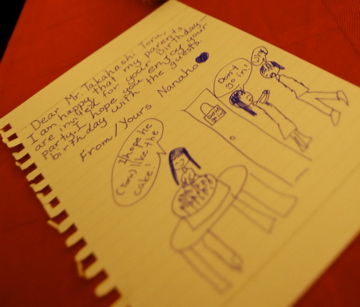 Dear Mr. Takahashi Toru,
I am happy that my parents
are invited for your Birthday
party. I hope you enjoy your
birthday with the guests.
From/Yours Nanaho
I hope he
like the
cake!
Don't
go in!